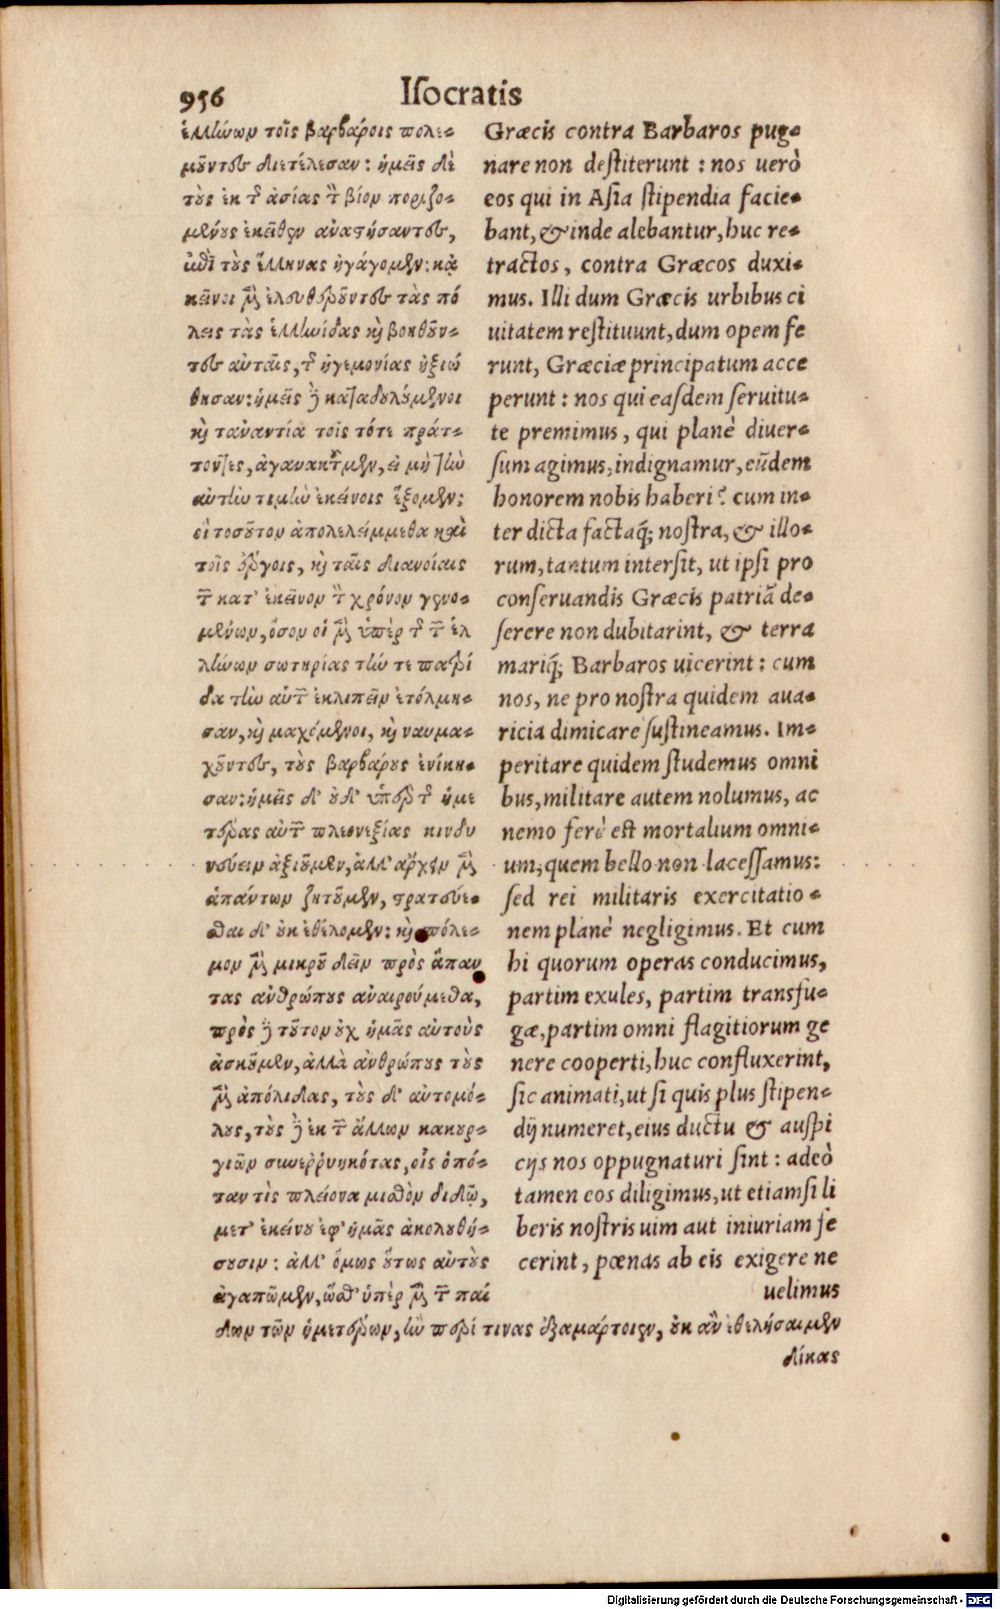 956
Isocratis
ἑλλήνων τοῖς βαρβάροις πολε-
μοῦντες διετέλεσαν: ἡμεῖς δὲ
τοὺς ἐκ τῆς ἀσίας τὸν βίον ποριζο-
μένους ἐκεῖθεν ἀναστήσαντες,
ἐπὶ τοὺς ἕλληνας ἠγάγομεν: κα
κεῖνοι μὲν ἐλευθεροῦντες τὰς πό
λεις τὰς ἑλληνίδας καὶ βοηθοῦν-
τες αὐταῖς, τῆς ἡγεμονίας ἠξιώ
θησαν: ἡμεῖς δὲ καταδουλούμενοι
καὶ τἀναντία τοῖς τότε πράτ-
τοντες, ἀγανακτοῦμεν, εἰ μὴ τὴν
αὐτὴν τιμὴν ἐκείνοις ἕξομεν;
οἳ τοσοῦτον ἀπολελείμμεθα καὶ
τοῖς ἔργοις, καὶ ταῖς διανοίαις
τῶν κατ' ἐκεῖνον τὸν χρόνον γενο-
μένων, ὅσον οἱ μὲν ὑπὲρ τῆς τῶν ἑλ
λήνων σωτηρίας τήν τε πατρί
δα τὴν αὑτῶν ἐκλιπεῖν ἐτόλμη-
σαν, καὶ μαχόμενοι, καὶ ναυμα-
χοῦντες, τοὺς βαρβάρους ἐνίκη-
σαν: ἡμεῖς δ' οὐδ' ὑπὲρ τῆς ἡμε
τέρας αὐτῶν πλεονεξίας κινδυ
νεύειν ἀξιοῦμεν, ἀλλ' ἄρχειν μὲν
ἁπάντων ζητοῦμεν, στρατεύε-
σθαι δ' οὐκ ἐθέλομεν: καὶ πόλε-
μον μὲν μικροῦ δεῖν πρὸς ἅπαν
τας ἀνθρώπους ἀναιρούμεθα,
πρὸς δὲ τοῦτον οὐχ ἡμᾶς αὐτοὺς
ἀσκοῦμεν, ἀλλὰ ἀνθρώπους τοὺς
μὲν ἀπόλιδας, τοὺς δ' αὐτομό-
λους, τοὺς δὲ ἐκ τῶν ἄλλων κακουρ-
γιῶν συνερρυηκότας, οἷς ὁπό-
ταν τὶς πλείονα μισθὸν διδῷ,
μετ' ἐκείνου ἐφ' ἡμᾶς ἀκολουθή-
σουσιν: ἀλλ' ὅμως οὕτως αὐτοὺς
ἀγαπῶμεν, ὥσθ' ὑπὲρ μὲν τῶν παί
δων τῶν ἡμετέρων, ἢν περί τινας ἐξαμάρτοιεν, οὐκ ἂν ἐθελήσαιμεν
δίκας
Græcis contra Barbaros pug-
nare non destiterunt : nos uerò
eos qui in Asia stipendia facie-
bant, & inde alebantur, huc re-
tractos, contra Græcos duxi-
mus. Illi dum Græcis urbibus ci
uitatem restituunt, dum opem fe
runt, Græciæ principatum acce
perunt : nos qui easdem seruitu-
te premimus, qui planè diuer-
sum agimus, indignamur, eũdem
honorem nobis haberi? cum in-
ter dicta factaq́; nostra, & illo-
rum, tantum intersit, ut ipsi pro
conseruandis Græcis patriã de-
serere non dubitarint, & terra
mariq́; Barbaros uicerint : cum
nos, ne pro nostra quidem aua-
ricia dimicare sustineamus. Im-
peritare quidem studemus omni
bus, militare autem nolumus, ac
nemo ferè est mortalium omni-
um, quem bello non lacessamus:
sed rei militaris exercitatio-
nem planè negligimus. Et cum
hi quorum operas conducimus,
partim exules, partim transfu-
gæ, partim omni flagitiorum ge
nere cooperti, huc confluxerint,
sic animati, ut si quis plus stipen-
dij numeret, eius ductu & auspi
cijs nos oppugnaturi sint : adeò
tamen eos diligimus, ut etiamsi li
beris nostris uim aut iniuriam fe
cerint, pœnas ab eis exigere ne
uelimus
Digitalisierung gefördert durch die Deutsche Forschungsgemeinschaft - DFG